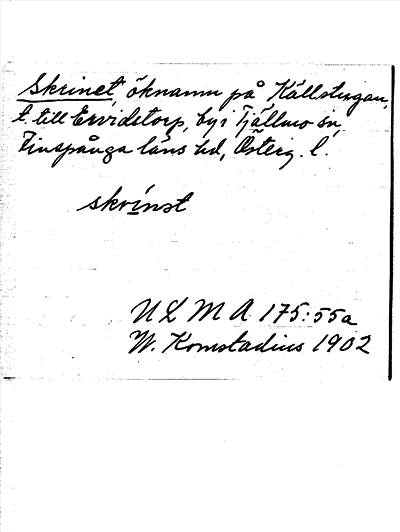 Skrinet, öknamn på Källstugan,
t. till Ervidstorp, by i Tjällmo sn,
Finspånga läns hd, Österg. l.
skrinst
U L M A 175:55a
W. Komstadius 1902